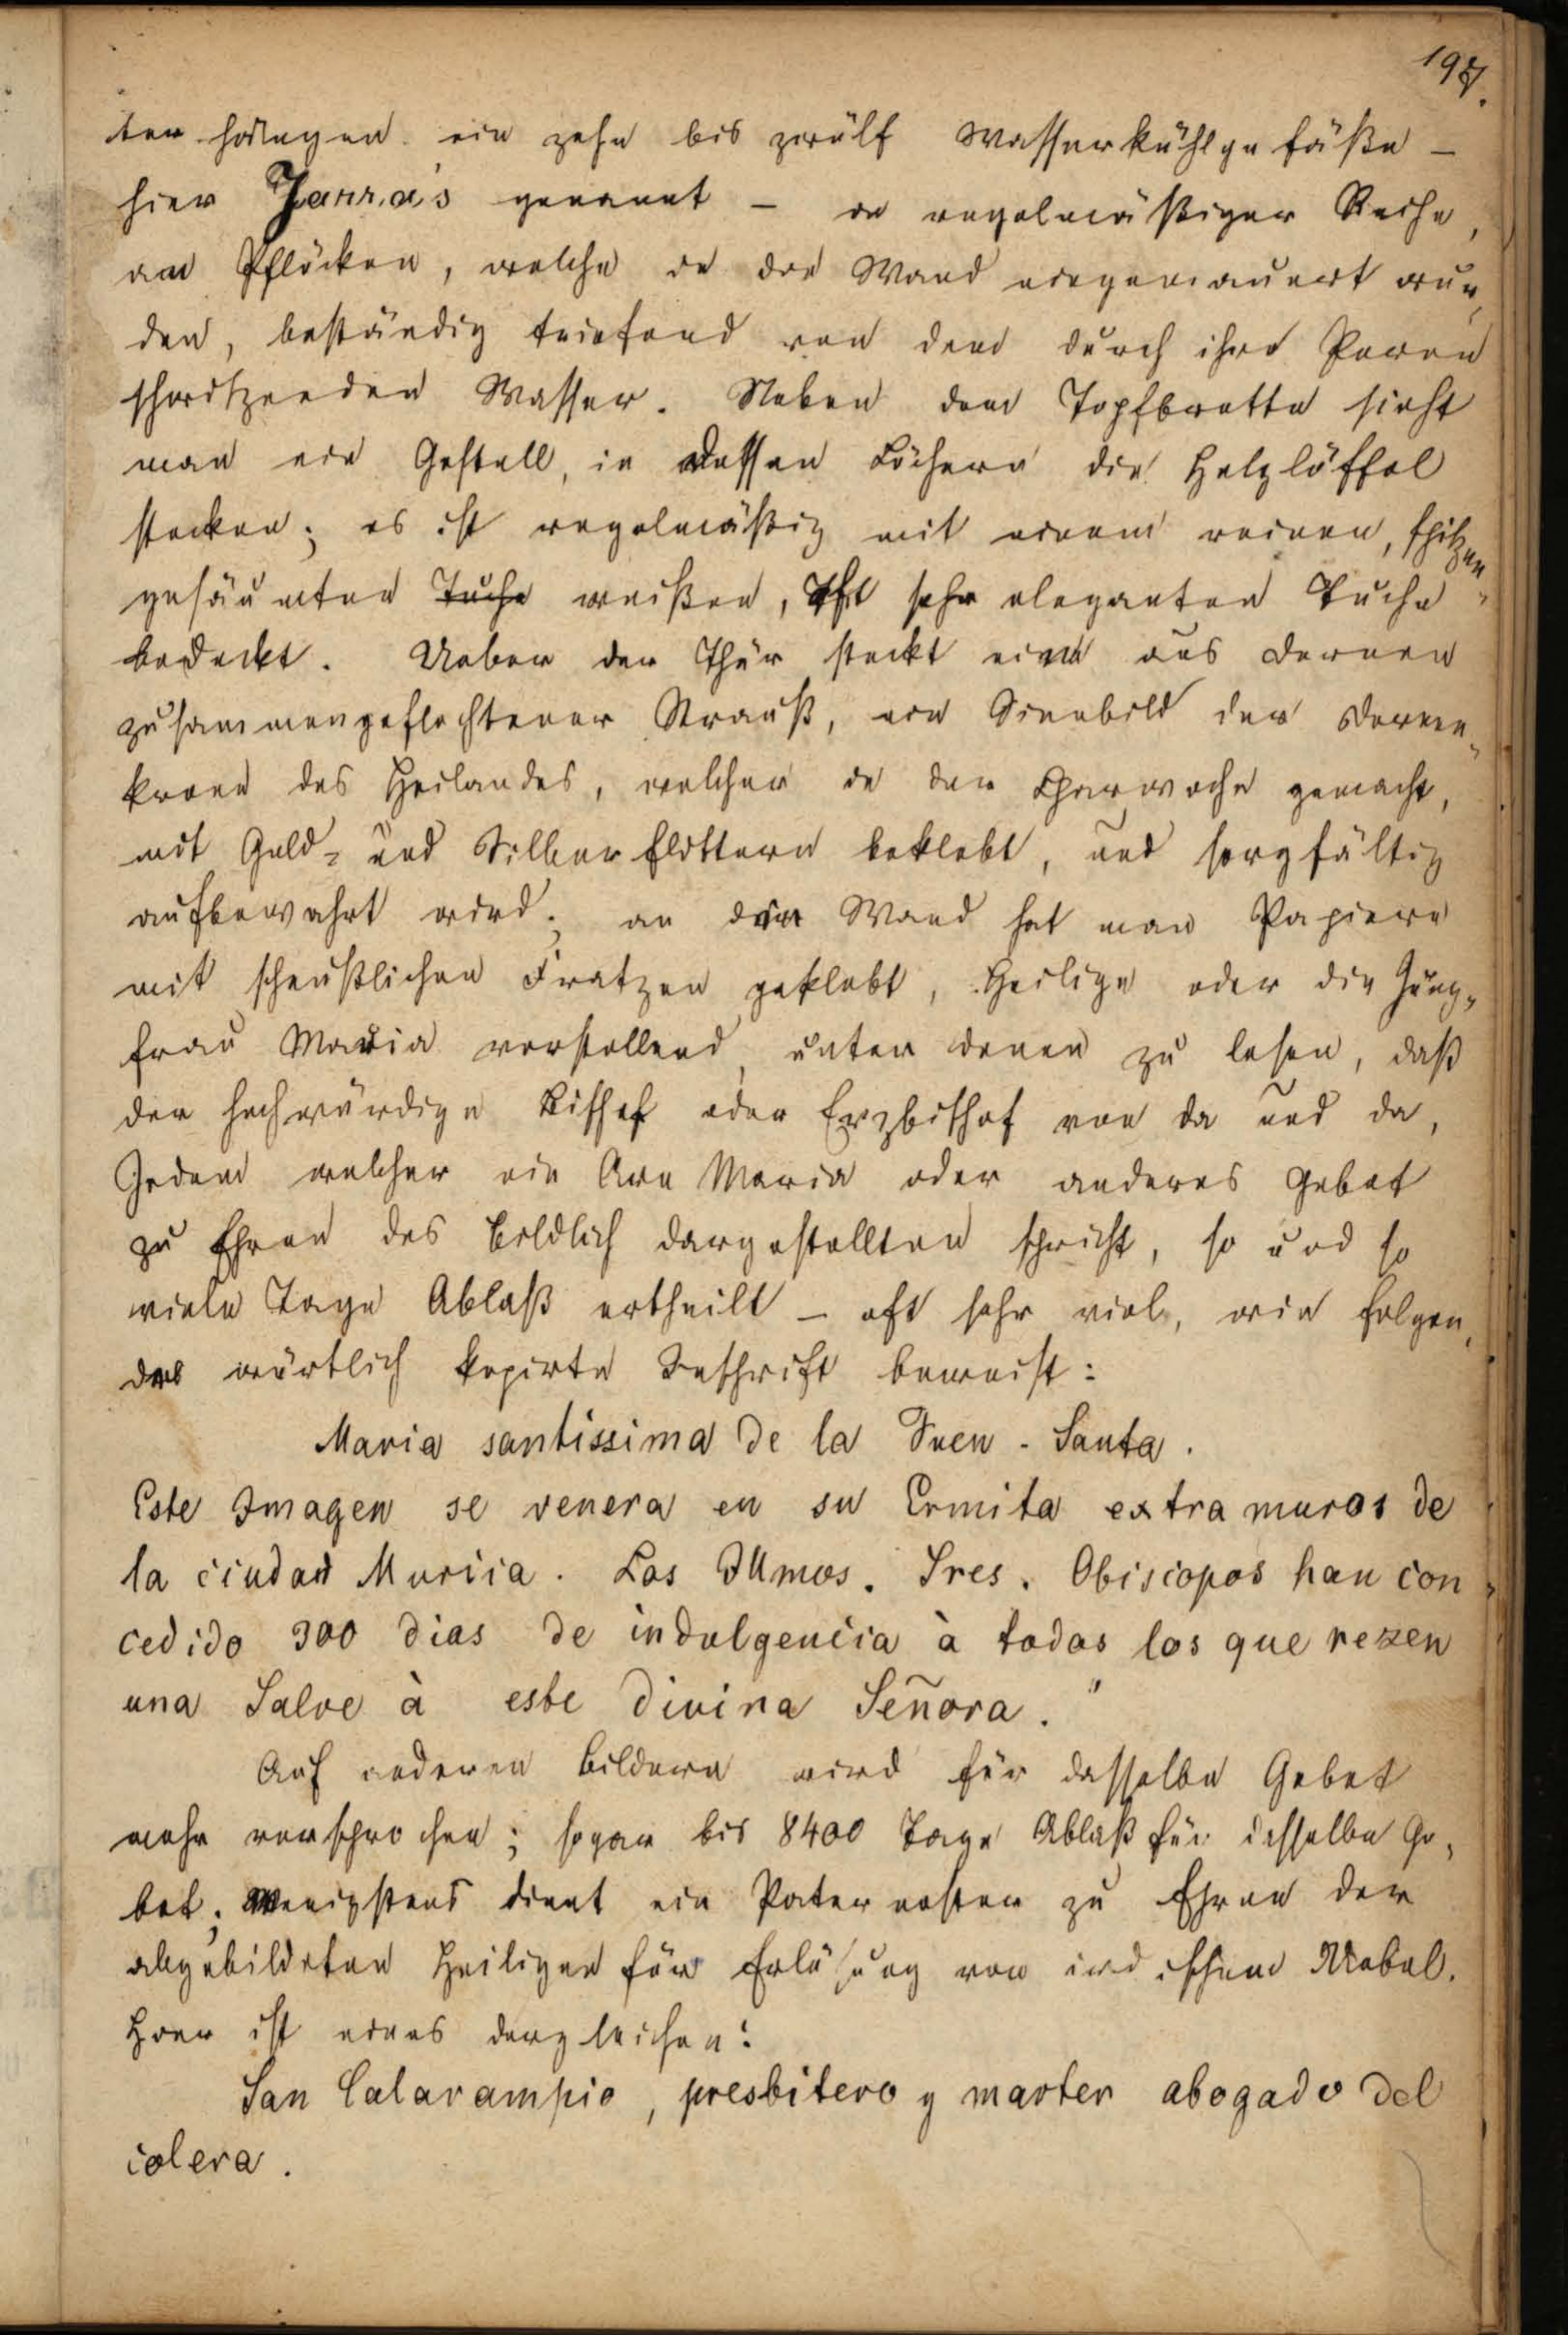 197.
ter hängen ein zehn bis zwölf Wasserkühlgefäße –
hier Jarra's genannt – in regelmäßiger Reihe,
an Pflöcken, welche in die Wand eingemauert wur-
den, beständig triefend von dem durch ihre Poren
schwitzenden Wasser. Neben dem Topfbrette sieht
man ein Gestell, in dessen Löchern die Holzlöffel
stecken; es ist regelmäßig mit einem reinen, spitzen-
gesäumten Tuche weißen, oft sehr eleganten Tuche
bedeckt. Ueber der Thür steckt ein aus Dornen
zusammengeflochtener Strauß, ein Sinnbild der Dornen-
krone des Heilandes, welcher in der Charwoche gemacht,
mit Gold- und Silberflittern beklebt, und sorgfältig
aufbewahrt wird; an der Wand hat man Papiere
mit scheußlichen Fratzen geklebt, Heilige oder die Jung-
frau Maria vorstellend, unter denen zu lesen, daß
der hochwürdige Bischof oder Erzbischof von da und da,
Jedem welcher ein Ave Maria oder anderes Gebet
zu Ehren des bildlich dargestellten spricht, so und so
viele Tage Ablaß ertheilt – oft sehr viel, wie folgen-
des wörtlich kopirte Inschrift beweist:
Maria santissima de la Fuen-Santa.
Este Imagen se venera en su Ermita extra muros de
la ciudad Muricia. Los Illmos. Sres. Obiscopos han con-
cedido 300 dias de indulgencia à todos los que rezen
una Salve à este divina Señora."
Auf anderen Bildern wird für dasselbe Gebet
mehr versprochen; sogar bis 8400 Tage Ablaß für dasselbe Ge-
bet; Wenigstens dient ein Pater noster zu Ehren der
abgebildeten Heiligen für Erlösung von irdischem Uebel.
Hier ist eines dergleichen:
San Calarampio, presbitero y marter abogado del
colera.